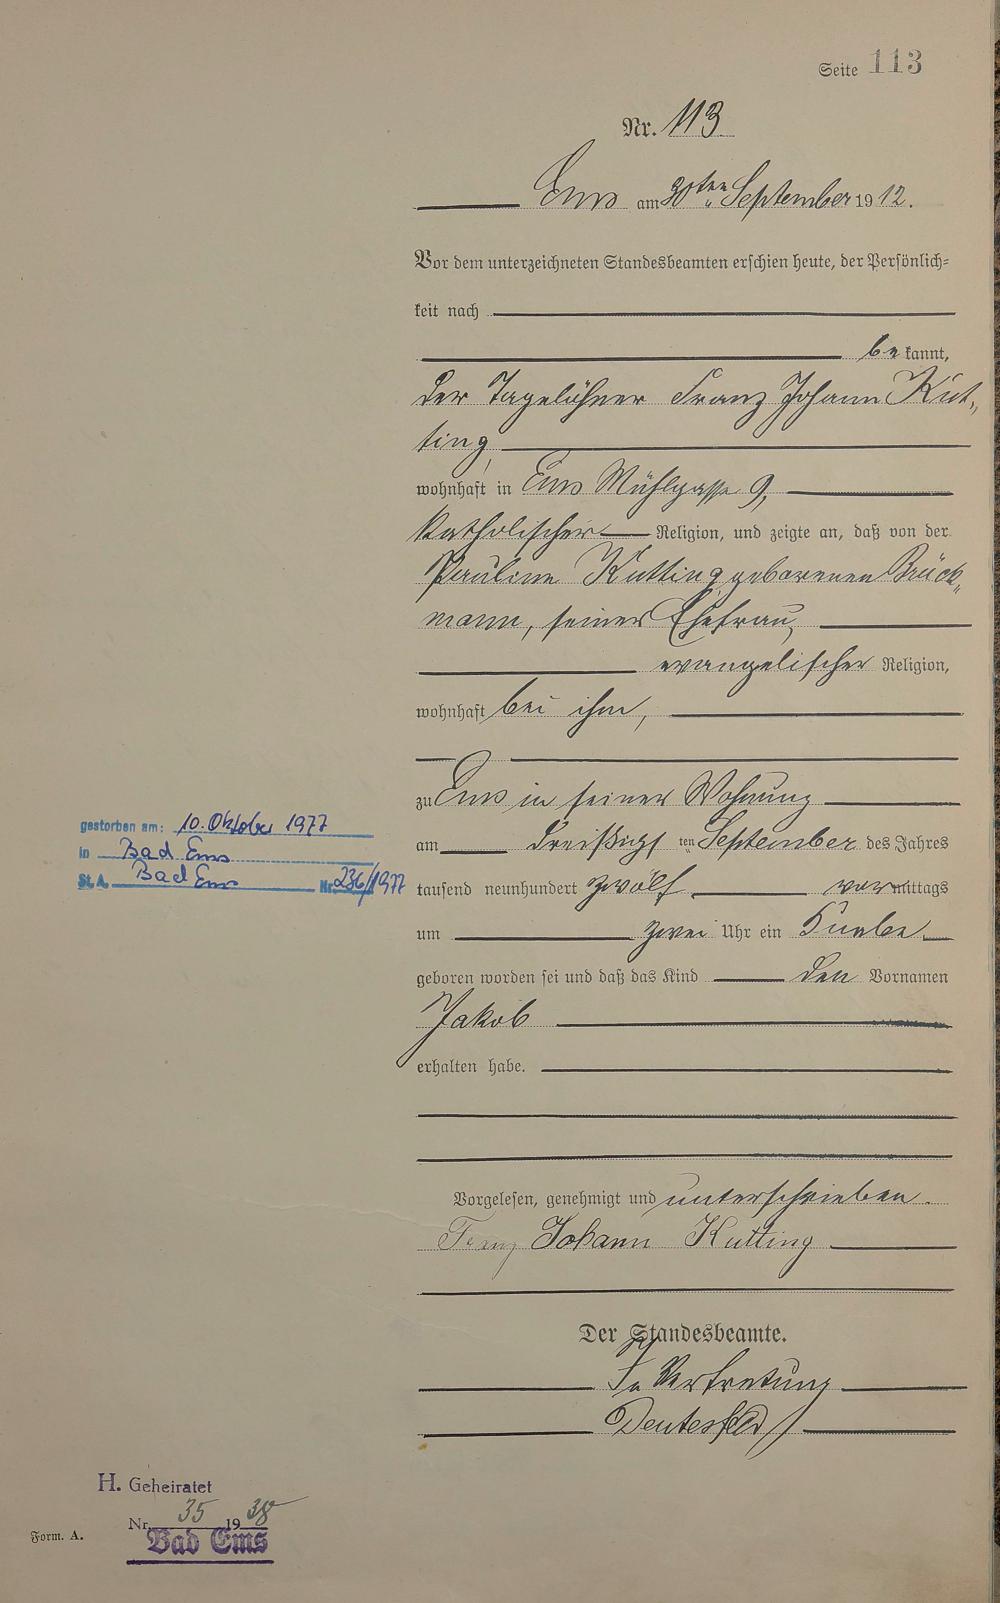 Seite 113
Nr. 113
Ems am 30ten September 1912.
Vor dem unterzeichneten Standesbeamten erschien heute, der Persönlich=
keit nach
be kannt,
der Tagelöhner Franz Johann Kut„
ting,
wohnhaft in Ems Mühlgasse 9,
katholischer Religion, und zeigte an, daß von der
Pauline Kutting geborenen Brück„
mann, seiner Ehefrau,
evangelischer Religion,
wohnhaft bei ihm,
zu Ems in seiner Wohnung
am dreißigsten September des Jahres
tausend neunhundert zwölf vormittags
um zwei Uhr ein Knabe
geboren worden sei und daß das Kind den Vornamen
Jakob
erhalten habe.
Vorgelesen, genehmigt und unterschrieben.
Franz Johann Kutting
Der Standesbeamte.
In Vertretung
gestorben am: 10. Oktober 1977
in Bad Ems
St.A. Bad Ems Nr. 236/1977
H. Geheiratet
Nr. 35 1938
Bad Ems
Form. A.